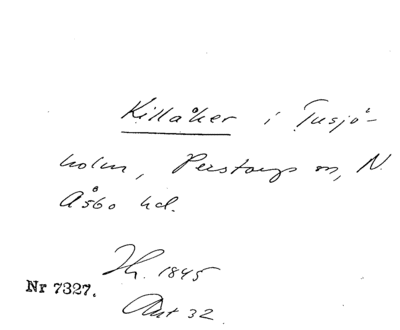 Killåker i Tusjö-
holm, Perstorps sn, N.
Åsbo hd.
Th. 1845
Nr 7327.
Akt 32